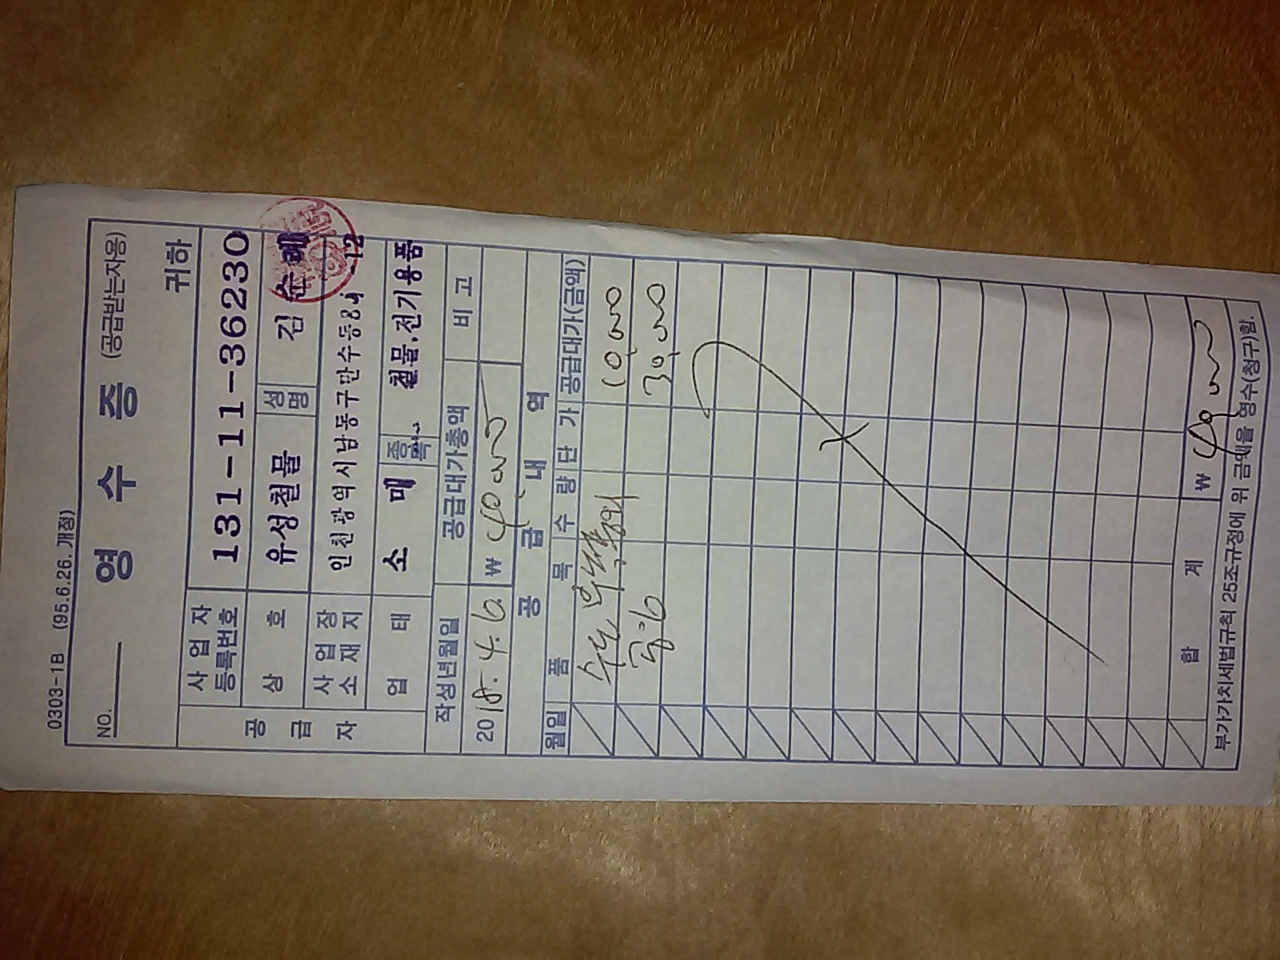 0303-1B (95.6.26. 개정)
NO. 영 수 증 (공급받는자용)
귀하
공급자
사업자등록번호 131-11-36230
상 호 유성철물 성명 김순례
사업장소재지 인천광역시남동구만수동84 -12
업 태 소 매 종목 철물.전기용품
작성년월일 공급대가총액 비 고
2018. 4. 6. ₩ 40,000
공 급 내 역
월일 품 목 수 량 단 가 공급대가(금액)
수도 10,000
공임 30,000
합 계 ₩ 40,000
부가가치세법규칙 25조규정에 위 금액을 영수(청구)함.